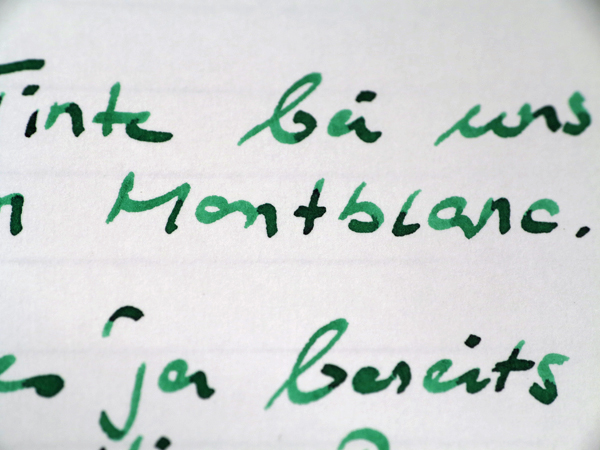 Tinte bei uns
Montblanc.
es ja bereits